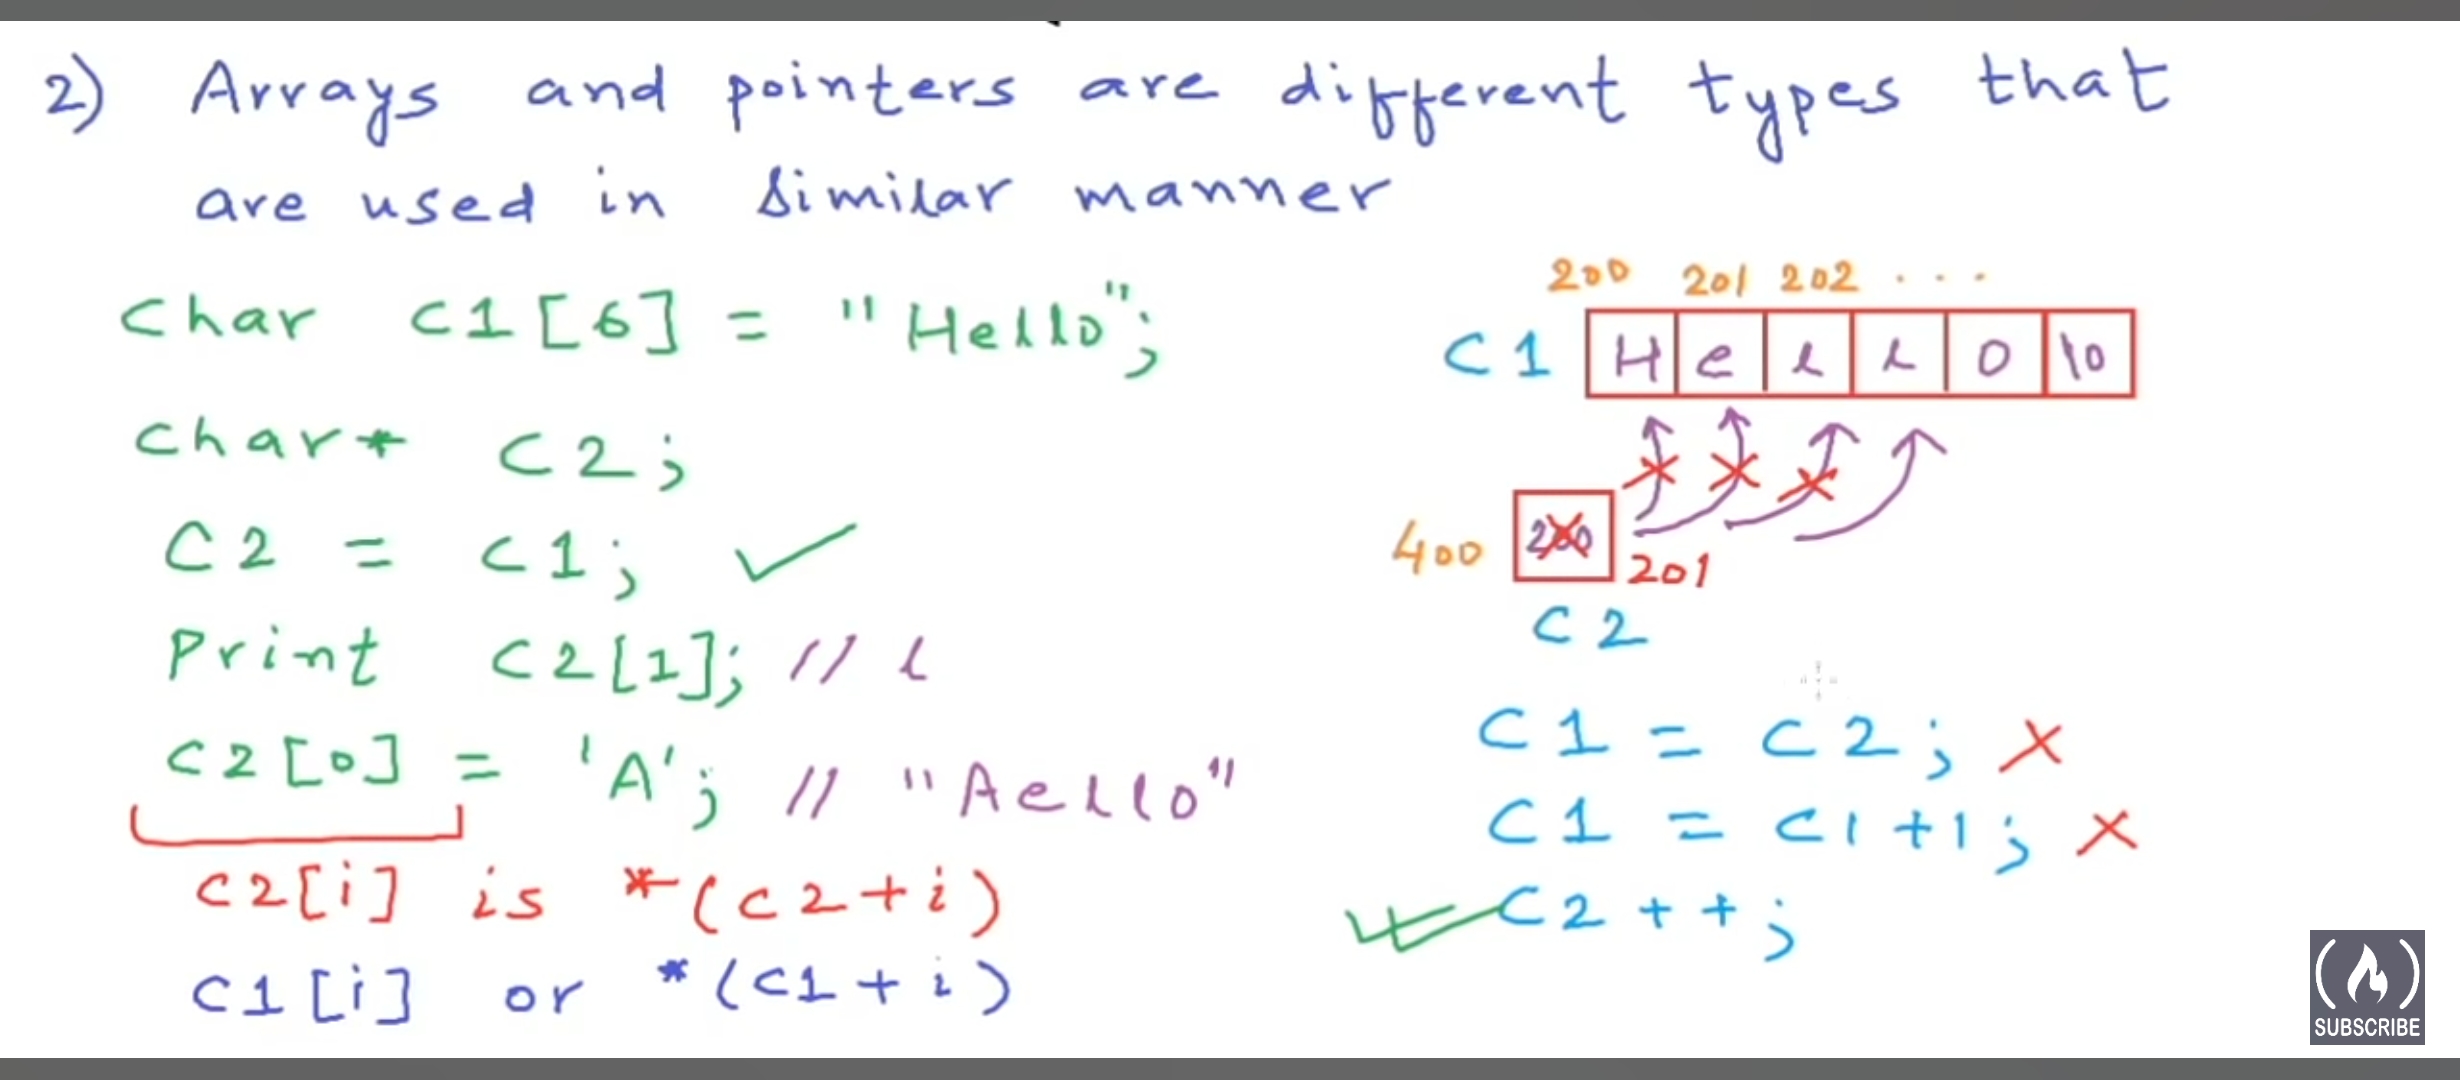 2) Arrays and pointers are different types that
are used in similar manner
Char C1[6] = "Hello";
Char* C2;
C2 = C1;
Print C2[1]; // l
C2[0] = 'A'; // "Aello"
C2[i] is *(C2+i)
C1[i] or *(C1+i)
200 201 202 ...
C1 H e l l o \0
400 200 201
C2
C1 = C2; X
C1 = C1+1; X
C2++;
SUBSCRIBE